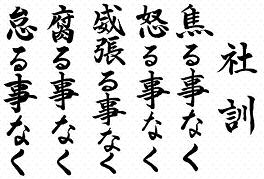 社訓
焦る事なく
怒る事なく
威張る事なく
腐る事なく
怠る事なく